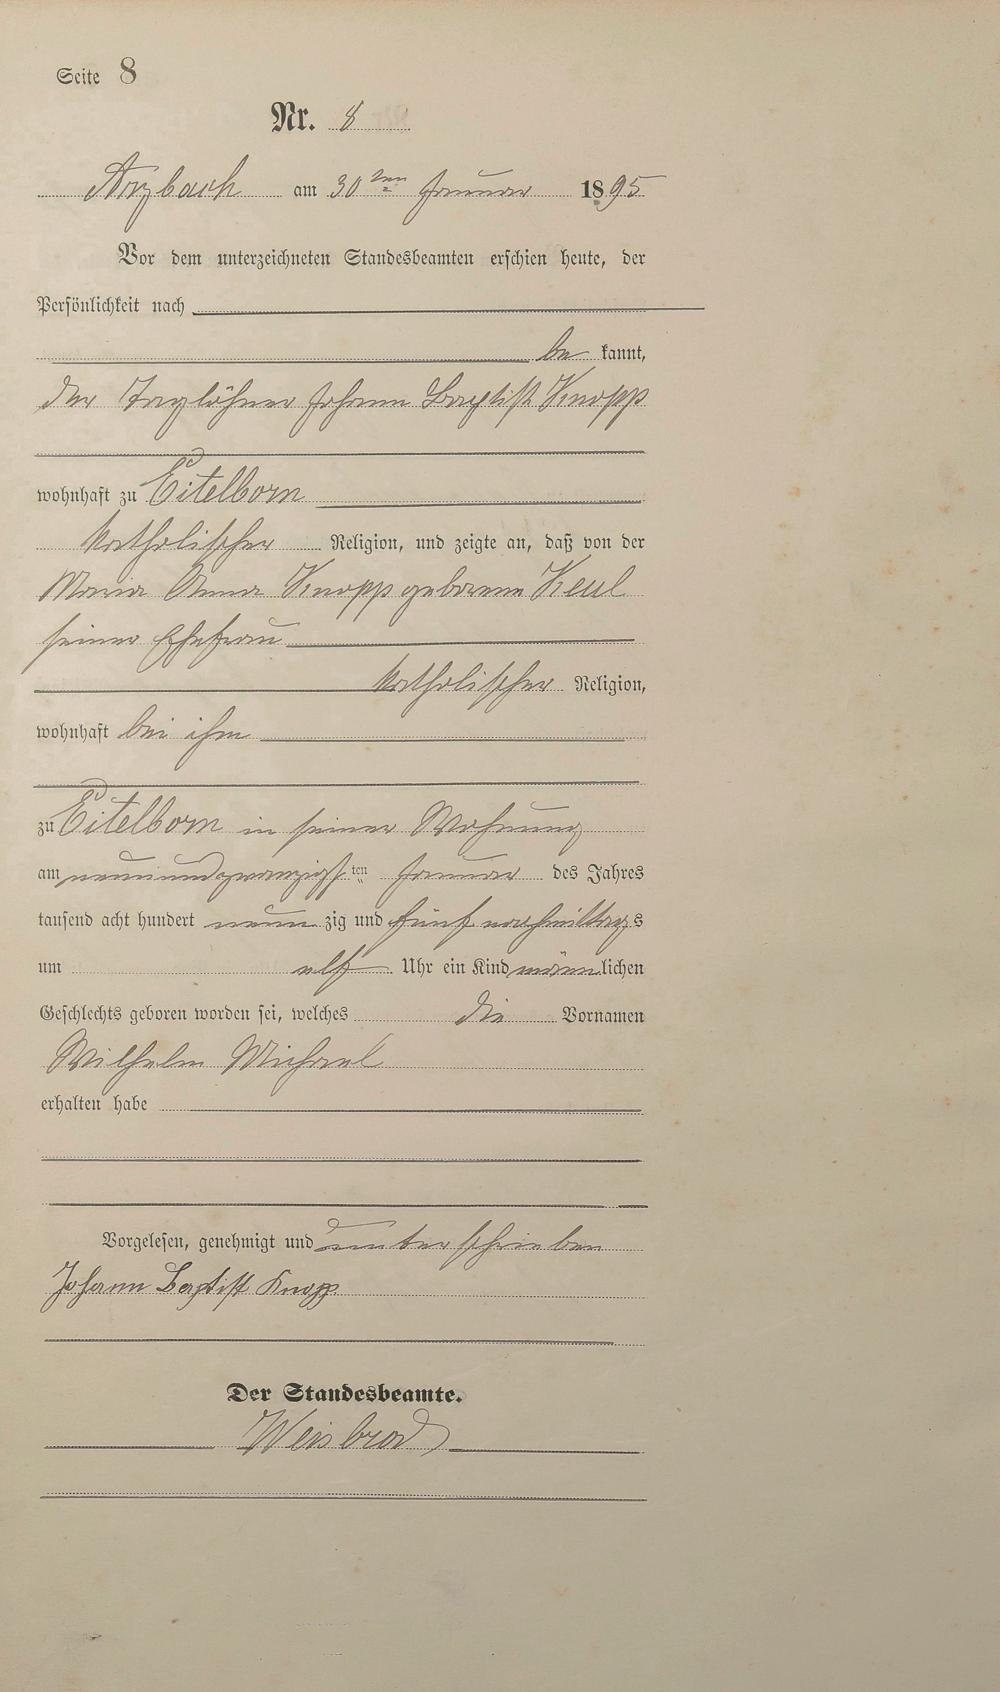 Seite 8
Nr. 8
Arzbach am 30ten Januar 1895
Vor dem unterzeichneten Standesbeamten erschien heute, der
Persönlichkeit nach
be kannt,
der Taglöhner Johann Baptist Knopp
wohnhaft zu Eitelborn
katholischer Religion, und zeigte an, daß von der
Maria Anna Knopp geborene Keul
seiner Ehefrau
katholischer Religion,
wohnhaft bei ihm
zu Eitelborn in seiner Wohnung
am neunundzwanzigsten Januar des Jahres
tausend acht hundert neun zig und fünf nachmittags
um elf Uhr ein Kind männlichen
Geschlechts geboren worden sei, welches die Vornamen
Wilhelm Michael
erhalten habe
Vorgelesen, genehmigt und unterschrieben
Johann Baptist Knopp
Der Standesbeamte.
Weisbrod